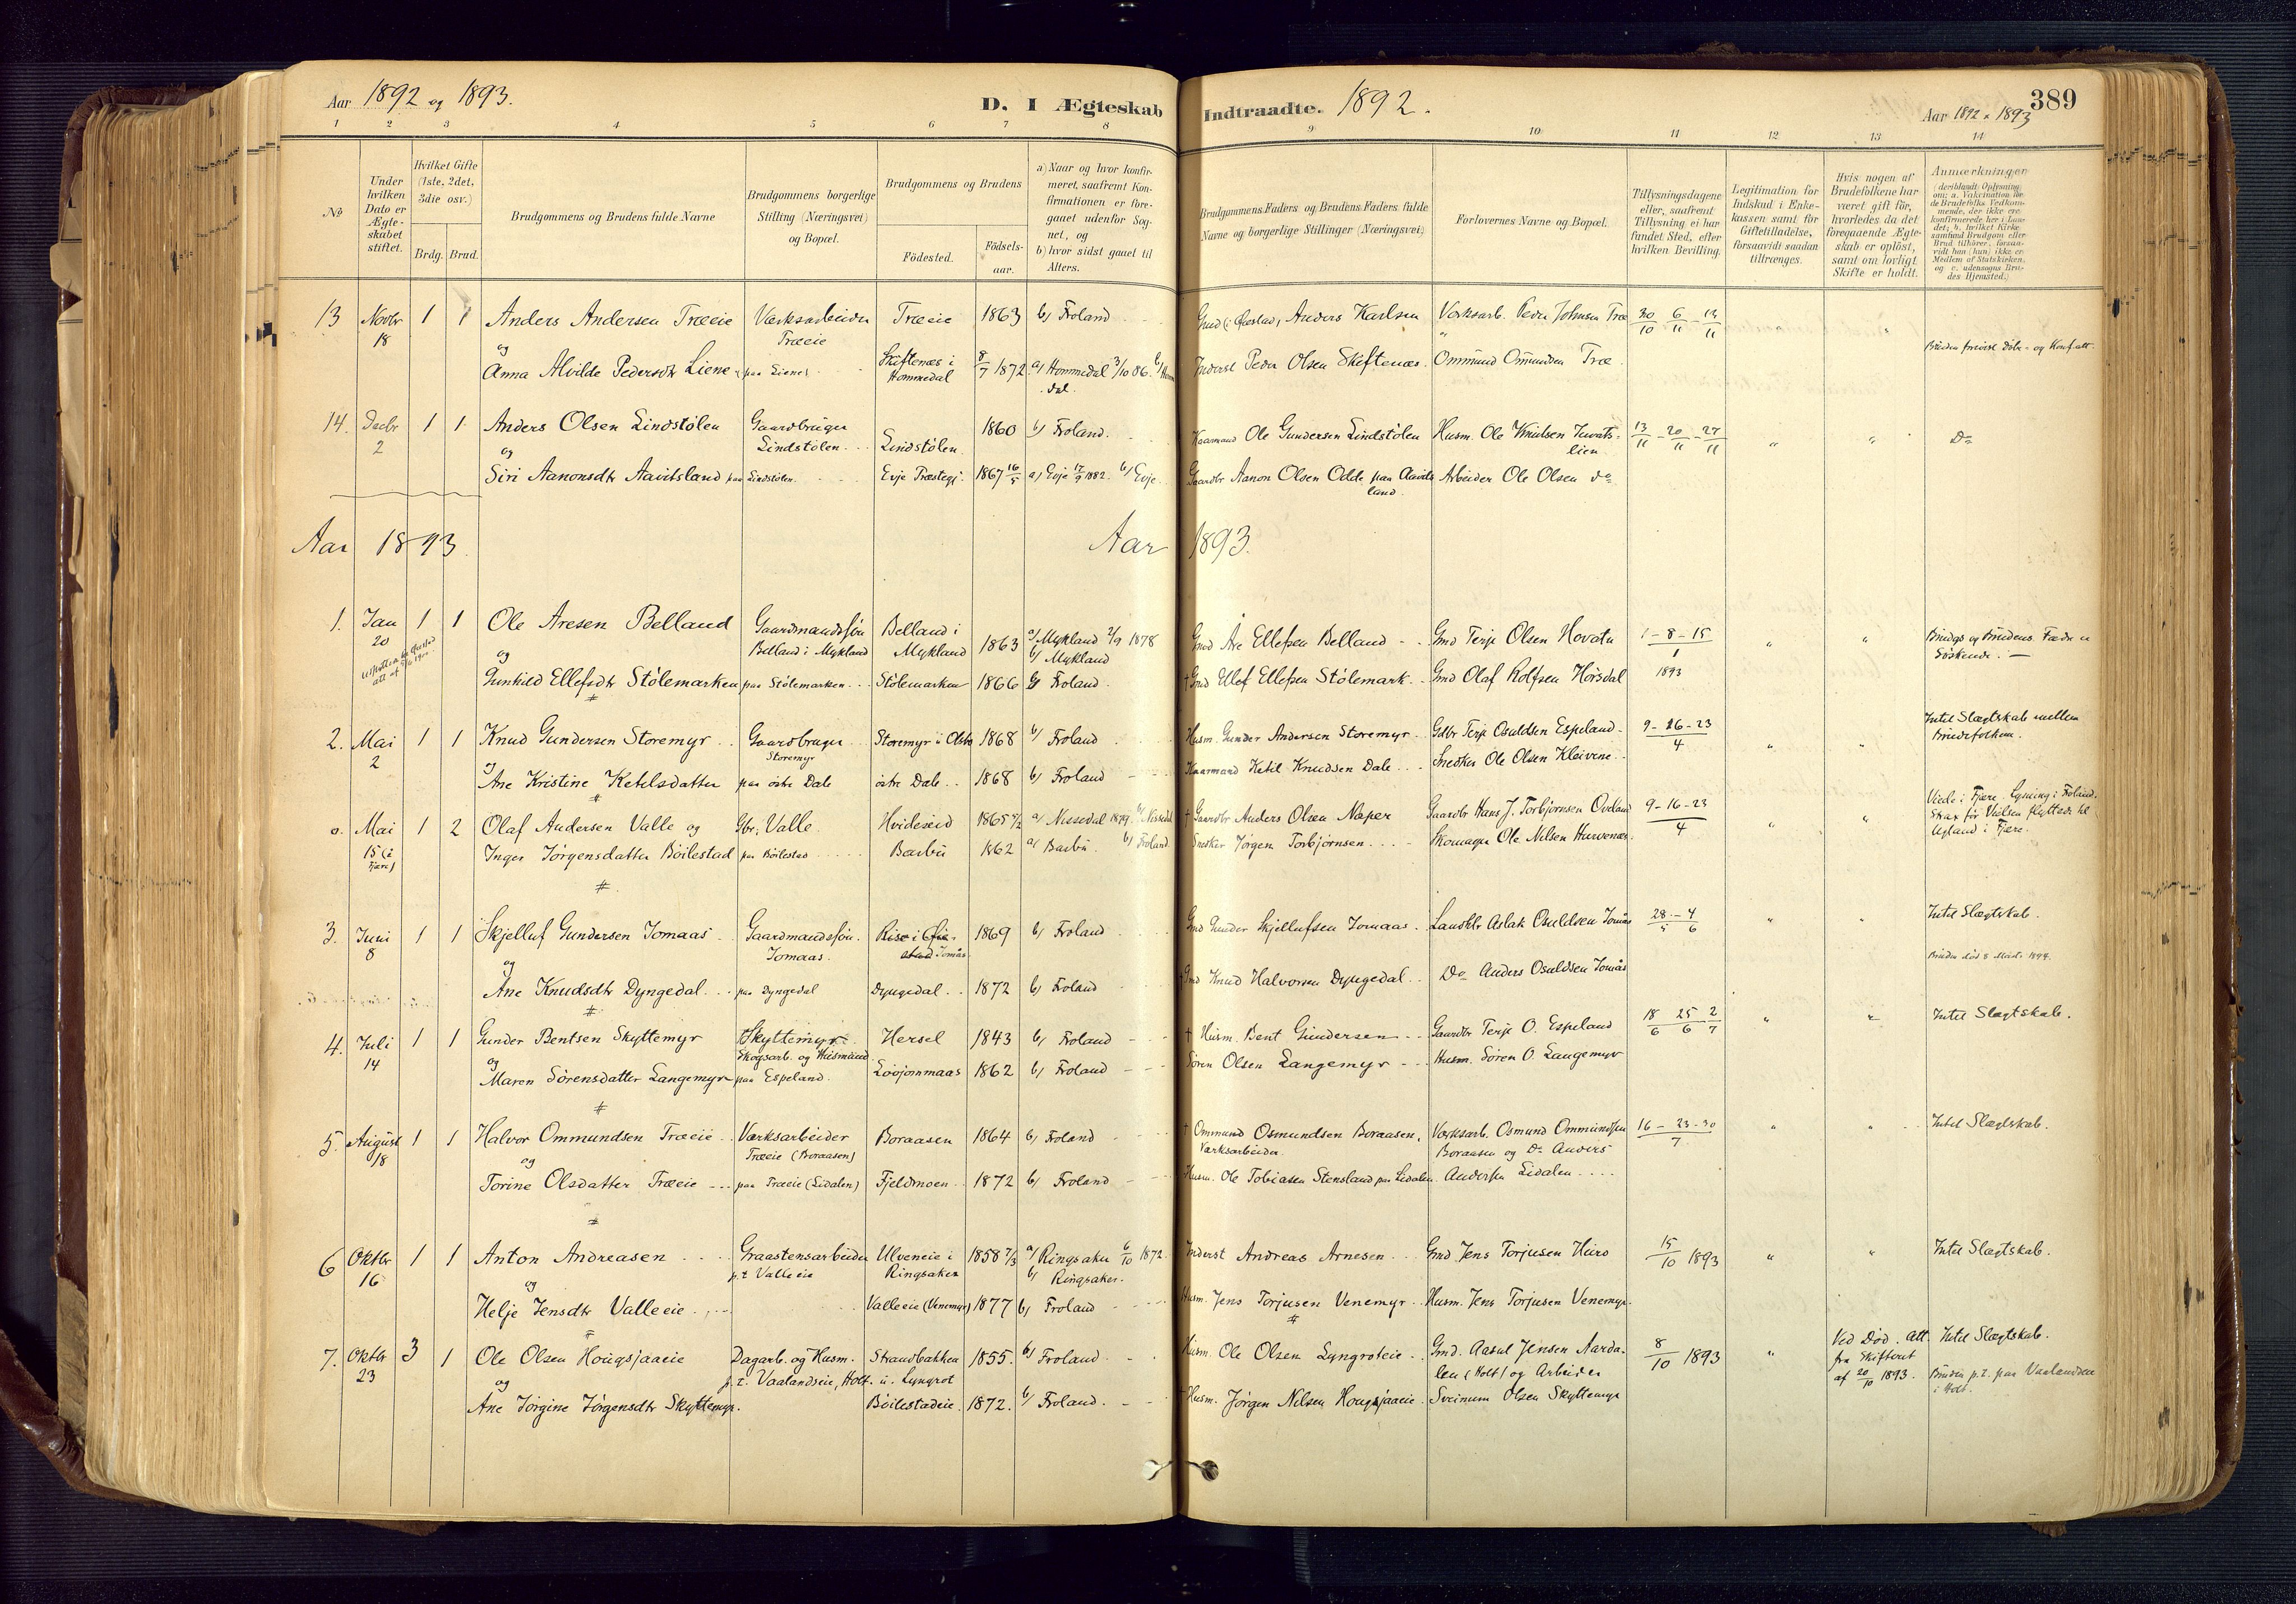 Aar 1892 og 1893.
D. I Ægteskab
Indtraadte. 1892.
Aar 1892 - 1893
389
1 2 3 4 5 6 7 8 9 10 11 12 13 14
No
Under hvilken Dato er Ægte- skabet stiftet.
Hvilket Gifte (1ste, 2det, 3die osv.)
Brdg. Brud.
Brudgommens og Brudens fulde Navne
Brudgommens borgerlige Stilling (Næringsvei) og Bopæl.
Brudgommens og Brudens
Fødested.
Fødsels- aar.
a) Naar og hvor konfir- meret, saafremt Kon- firmationen er fore- gaaet udenfor Sog- net, og
b) hvor sidst gaaet til Alters.
Brudgommens Faders og Brudens Faders fulde Navne og borgerlige Stillinger (Næringsvei)
Forlovernes Navne og Bopæl.
Tillysningsdagene eller, saafremt Tillysning ei har fundet Sted, efter hvilken Bevilling.
Legitimation for Indskud i Enke- kassen samt for Giftetilladelse, forsaavidt saadan tiltrænges.
Hvis nogen af Brudefolkene har været gift før, hvorledes da det foregaaende Ægte- skab er opløst, samt om lovligt Skifte er holdt.
Anmærkninger
13 Novbr 18 1 1 Anders Andersen Træeie Værksarbeider Træeie Træeie 1863 b) Froland
Anders Karlsen Værksarb. Peder Johnsen Træ 30/10 6/11 - 13/11 " "
og
Anna Alvilde Pedersdtr Liene paa Liene Skiftenæs i Hommedal 8/7 1872 a) Hommedal 3/10 86.
Inderst Peder Olsen Skeftenæs Ommund Ommundsen Træ
14. Decbr 2 1 1 Anders Olsen Lindstølen Gaardbruger Lindstølen Lindstølen 1860 b) Froland.
Ole Gundersen Lindstølen Husm. Ole Knudsen 13/11 - 20/11 - 27/11 " " Do
og
Siri Aanonsdtr Aavitsland paa Lindstølen. Evje Præstegj. 1867 16/5 a) Evje 17/9 1882. b) Evje
Gaardbr Aanon Olsen Odde paa Aavits land. Arbeider Ole Olsen do
Aar 1893
Aar 1893.
1. Jan 20 1 1 Ole Aresen Belland Gaardmandssøn Belland i Mykland Belland i Mykland 1863 a) Mykland 2/9 1878 b) Mykland
Gmd Are Ellefsen Belland Gmd Terje Olsen Hovatn 1 - 8 - 15 / 1 1893 " " Brudgs og Brudens Fædre Søskende.
og
Gunhild Ellefsdtr Stølemarken paa Stølemarken Stølemarken 1866 Froland
† Gmd Ellef Ellefsen Stølemark Gmd Olaf Rolfsen Hørsdal
2. Mai 2 1 1 Knud Gundersen Storemyr Gaardbruger Storemyr Storemyr 1868 b) Froland
Husm. Gunder Andersen Storemyr Gdbr Terje Osuldsen Espeland 9 - 16 - 23 / 4 " " Intet Slægtskab mellem Brudefolkene.
og
Ane Kristine Ketilsdatter paa østre Dale østre Dale 1868 b) Froland
Kaarmand Ketil Knudsen Dale Snedker Ole Olsen Kleivene
0. Mai 15 (i Fjære) 1 2 Olaf Andersen Valle og Gbr. Valle Hvideseid 1865 a) Nissedal 1879. b) Nissedal
† Gaardbr Anders Olsen Næper Gaardbr Hans J. Torbjørnsen Oveland 9 - 16 - 23 / 4 " " Viede i Fjære. Lysning i Froland. Strax før Vielsen flyttede til i Fjære.
Inger Jørgensdatter Bøilestad paa Bøilestad Barbu 1862 a) Barbu. b) Froland
Snedker Jørgen Torbjørnsen Skomager Ole Nilsen Hurvenæs
3. Juni 8 1 1 Skjelluf Gundersen Jomaas Gaardmandssøn. Jomaas. Jomås 1869 b) Froland
Gmd Gunder Skjellufsen Jomaas Aslak Osuldsen Jomås 28/5 - 4/6 " " Intet Slægtskab.
og
Ane Knudsdtr Dyngedal paa Dyngedal Dyngedal 1872 b) Froland
Gmd Knud Halvorsen Dyngedal Do Anders Osuldsen Jomås
4. Juli 14 1 1 Gunder Bentsen Skyttemyr Skyttemyr. Skogsarb. og Husmand Hersel 1843 b) Froland
† Husm. Bent Gundersen Gaardbr Terje O. Espeland 18/6 25/6 2/7 " " Intet Slægtskab.
og
Maren Sørensdatter Langemyr paa Espeland. Løvjommaas 1862 b) Froland
Søren Olsen Langemyr Husm. Søren O. Langemyr
5. August 18 1 1 Halvor Ommundsen Træeie Værksarbeider Træeie (Boraasen) Boraasen 1864 b) Froland
† Ommund Osmundsen Boraasen, Værksarbeider. Værksarb. Osmund Ommundsen Boraasen og Do Anders 16 - 23 - 30 / 7 " " Intet Slægtskab.
og
Torine Olsdatter Træeie paa Træeie (Lidalen) Fjeldmoen 1872 b) Froland
Husm. Ole Tobiasen Stensland paa Lidalen Andersen Lidalen
6 Oktbr 16 1 1 Anton Andreasen Graastensarbeider p.t Valleeie Ulveneie i Ringsaker 1858 7/3 a) Ringsaker 6/10 1872. b) Ringsaker.
Inderst Andreas Arnesen Gmd Jens Torjusen Heiro 15/10 1893 " " Intet Slægtskab.
og
Helje Jensdtr Valleeie Valleeie (Venemyr) 1877 b) Froland
Husm. Jens Torjusen Venemyr Husm. Jens Torjusen Venemyr.
7. Oktbr 23 3 1 Ole Olsen Hougsjaaeie Dagarb. og Husm. p.t. Vaalandseie, Holt. Strandbakken u. Lyngrot 1855. b) Froland
Husm. Ole Olsen Lyngroteie Gmd. Aasul Jensen Aarda- len (Holt) og Arbeider 8/10 1893 " Ved Død. Att. fra Skifteret af 20/10 1893. Intet Slægtskab. Bruden p.t. paa Vaalandseie i Holt.
og
Ane Jørgine Jørgensdtr Skyttemyr. Bøilestadeie. 1872. b) Froland.
† Husm. Jørgen Nilsen Hougsjaaeie. Sveinum Olsen Skyttemyr